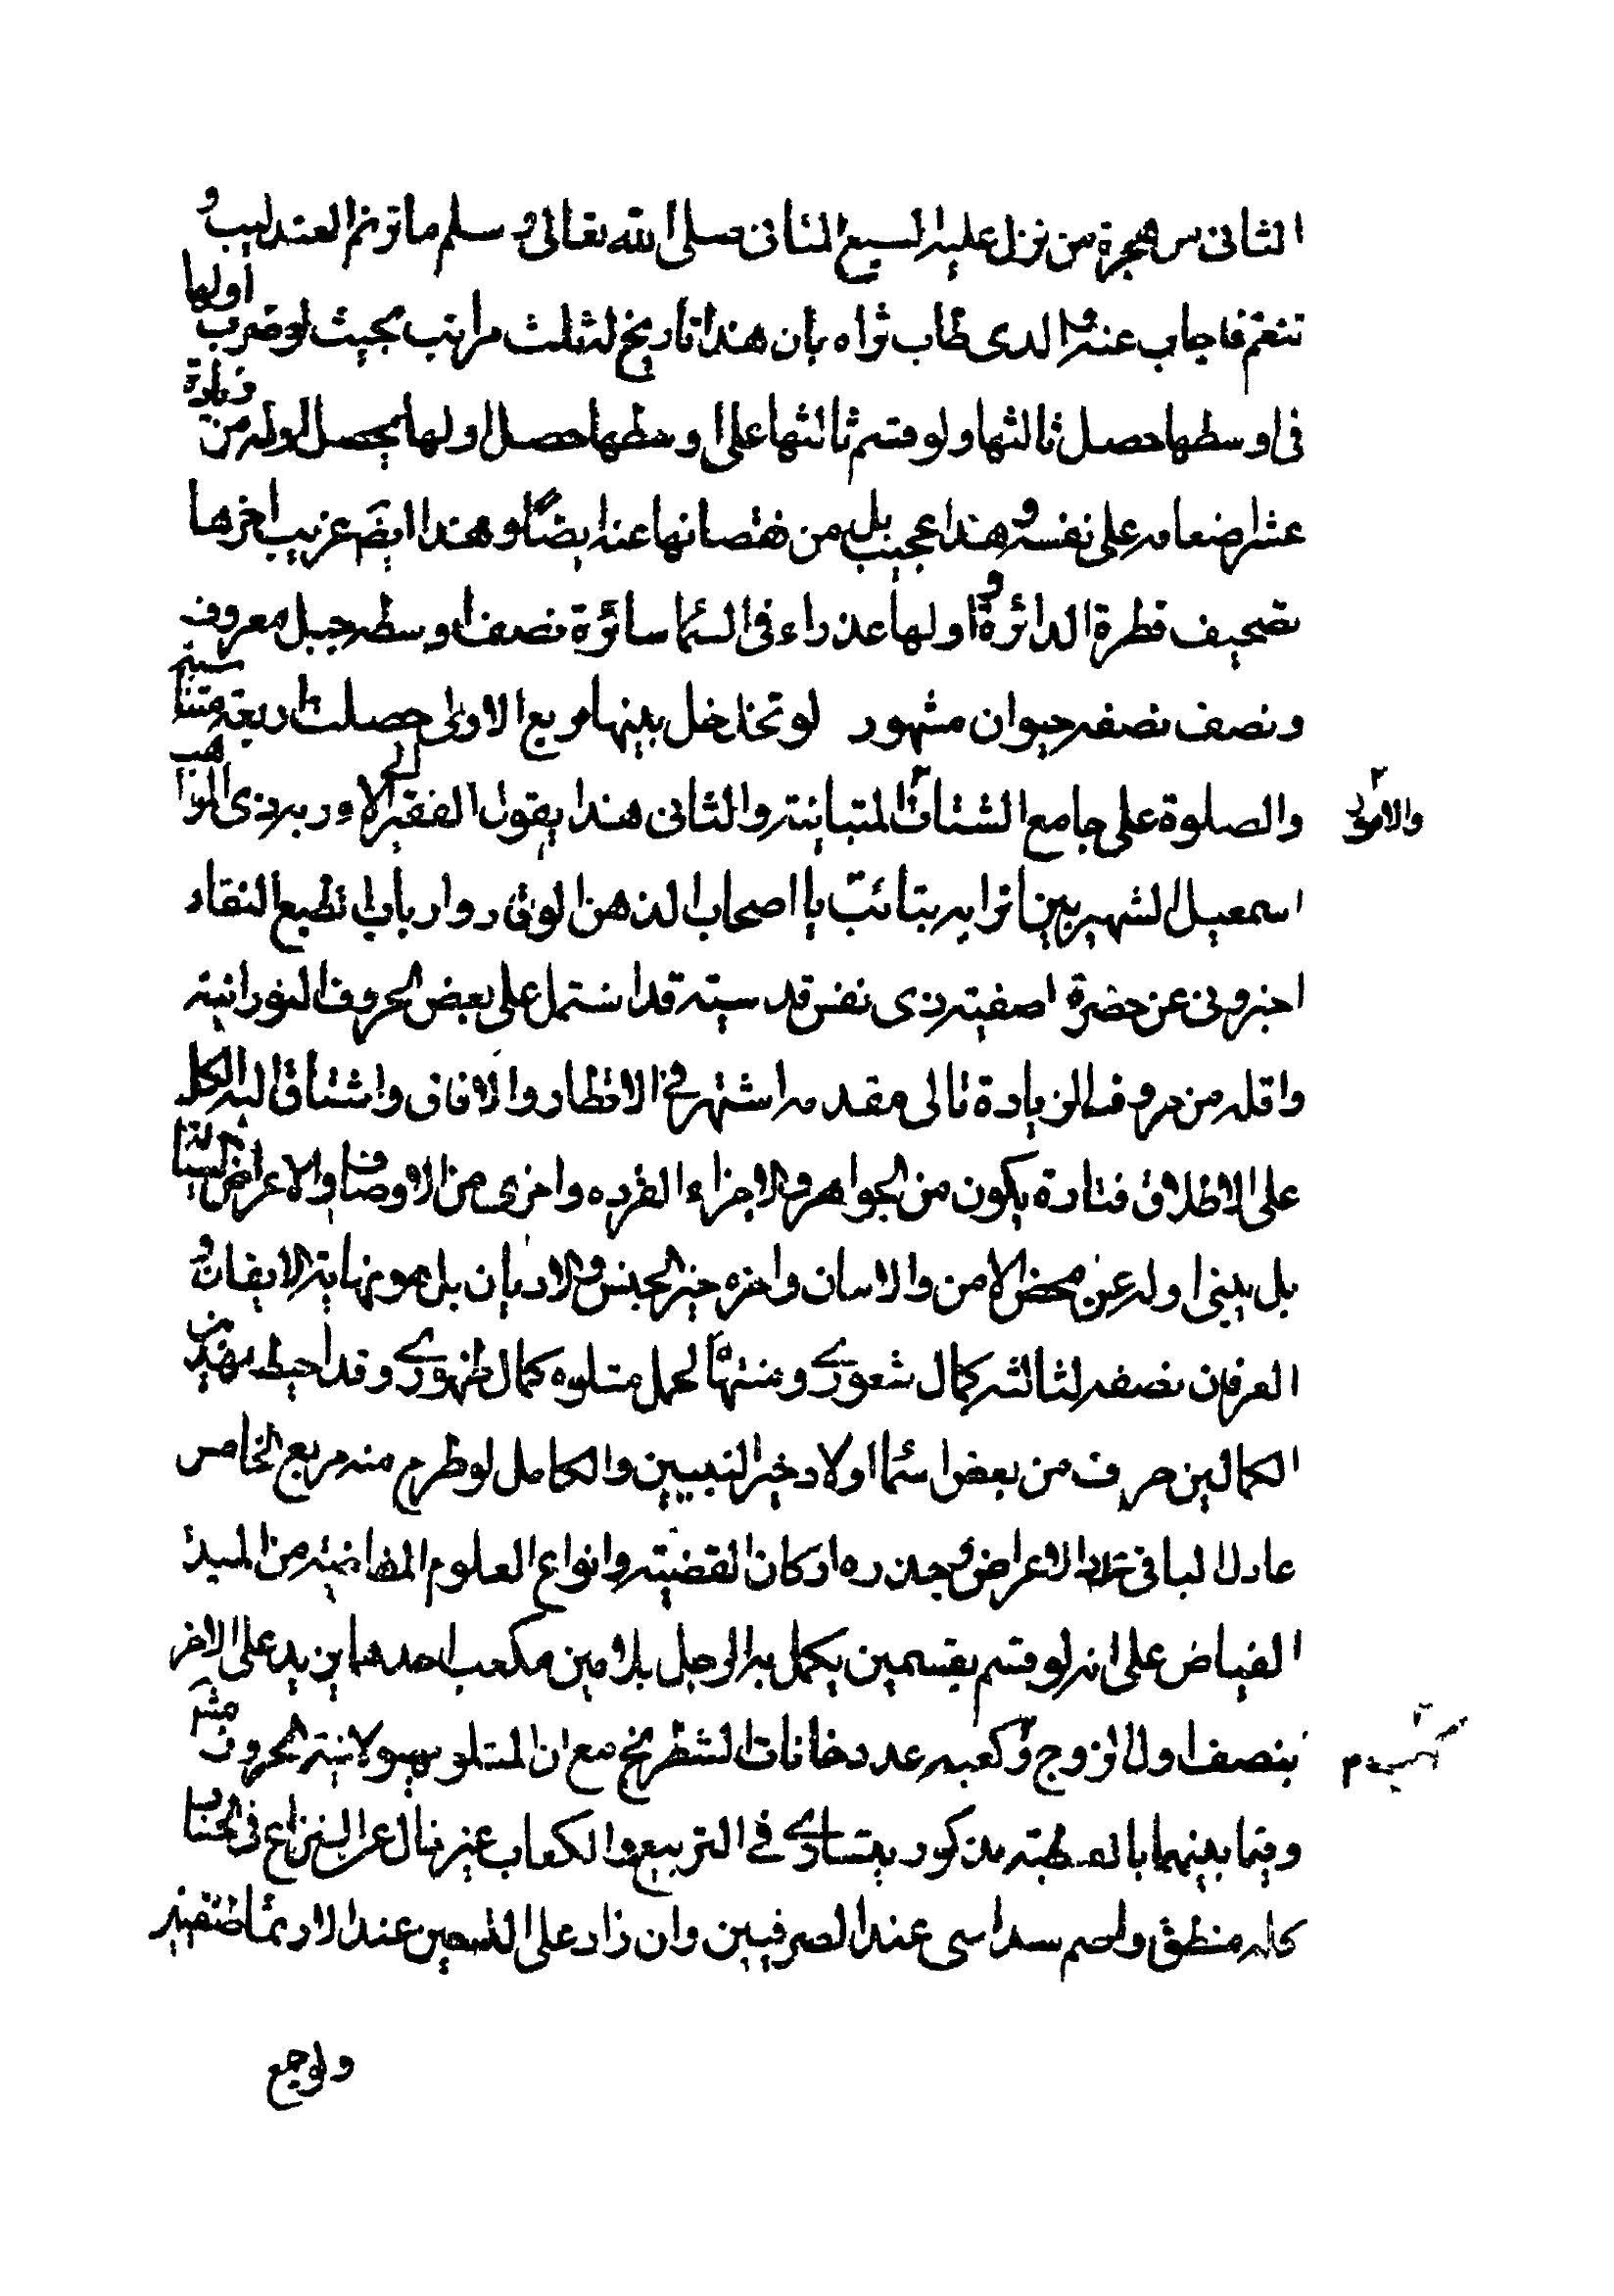 الثانى من هجرة من نزل عليه السبع المثانى صلى الله تعالى وسلم ما ترنم العندليب و
تنغم فاجاب عنه والدى طاب ثراه بان هذا تاريخ له ثلث مراتب بحيث لو ضرب اولها
فى اوسطها حصل ثالثها ولو قسم ثالثها على اوسطها حصل اولها يحصل اوله من زيادة
عشر اضعافه على نفسه وهذا عجيب بل من نقصانها عنه ايضا وهذا ايضا غريب اخرها
تصحيف قطرة الدائرة واولها عذراء فى السما سائرة نصف اوسطه جبل معروف
ونصف نصفه حيوان مشهور لو تخلخل بينها مربع الاولى حصلت اربعة متناسبة
والصلوة على جامع الشتات المتباينة والثانى هذا يقول الفقير الى الاء ربه ذى المواهب
اسمعيل الشهير بين اترابه بتائب يا اصحاب الذهن الوقاد وارباب الطبع النقاد
اخبرونى عن حضرة اصفية ذى نفس قدسية قد اشتمل على بعض الحروف النورانية
واقله من حروف الزيادة تالى مقدمه اشتهر فى الاقطار والافاق واشتاق اليه الكل
على الاطلاق فتارة يكون من الجواهر والاجزاء الفرده واخرى من الاوصاف والاعراض
بل بينى اوله عين محض الامن والامان واخره خير الجنس والاديان بل هو نهاية الايقان و
العرفان نصفه لثالثه كمال شعورى ومنتها لحمل متلوه كمال ظهورى وقد احيط بهذين
الكمالين حرف من بعض اسما اولاد خير النبيين والكامل لو طرح منه مربع الخامس
عادل الباقى الاعراض وجذره اركان القضية وانواع العلوم المفاضة من المبدئ
الفياض على انه لو قسم بقسمين يكمل به الوجل بلا مين مكعب احدهما يزيد على الاخر
بنصف اول الزوج وكعبه عدد خانات الشطرنج مع ان المتلو هيولانية الحروف
وفيما بينهما مذكور بتساوى فى التربيع والكعاب غير نال عرا النزاع فى الحساب
كله منطق واصم سداسى عند الصرفيين وان زاد على عند
ولو جمع